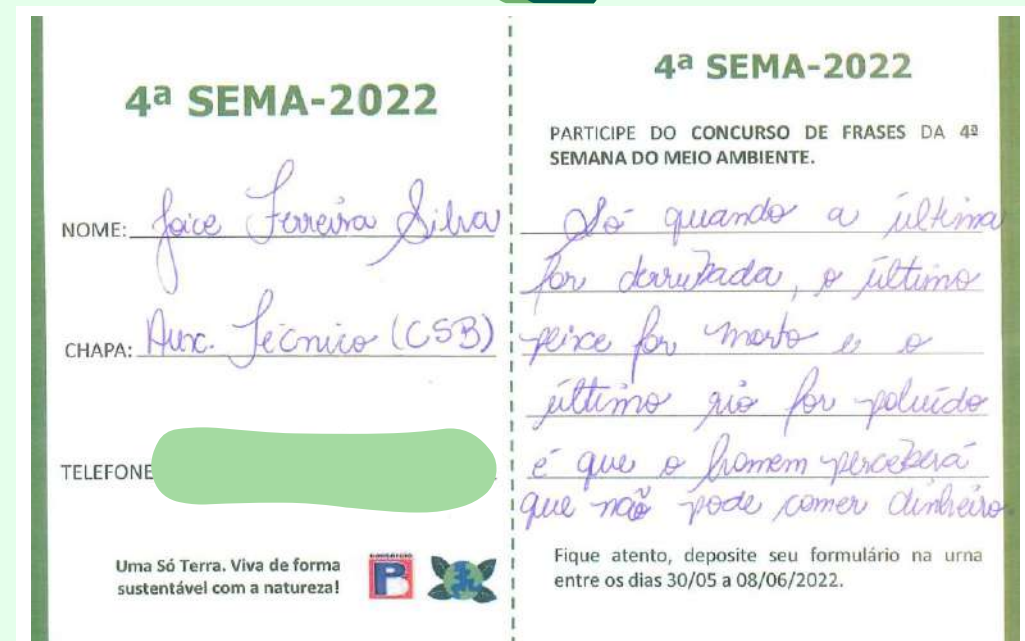 4ª SEMA-2022
NOME: Joice Ferreira Silva
CHAPA: Aux. Técnico (CSB)
TELEFONE
Uma Só Terra. Viva de forma
sustentável com a natureza!
CONSÓRCIO
B
4ª SEMA-2022
PARTICIPE DO CONCURSO DE FRASES DA 4ª
SEMANA DO MEIO AMBIENTE.
Só quando a última
for derrubada, o último
peixe for morto e o
último rio for poluído
é que o homem perceberá
que não pode comer dinheiro.
Fique atento, deposite seu formulário na urna
entre os dias 30/05 a 08/06/2022.